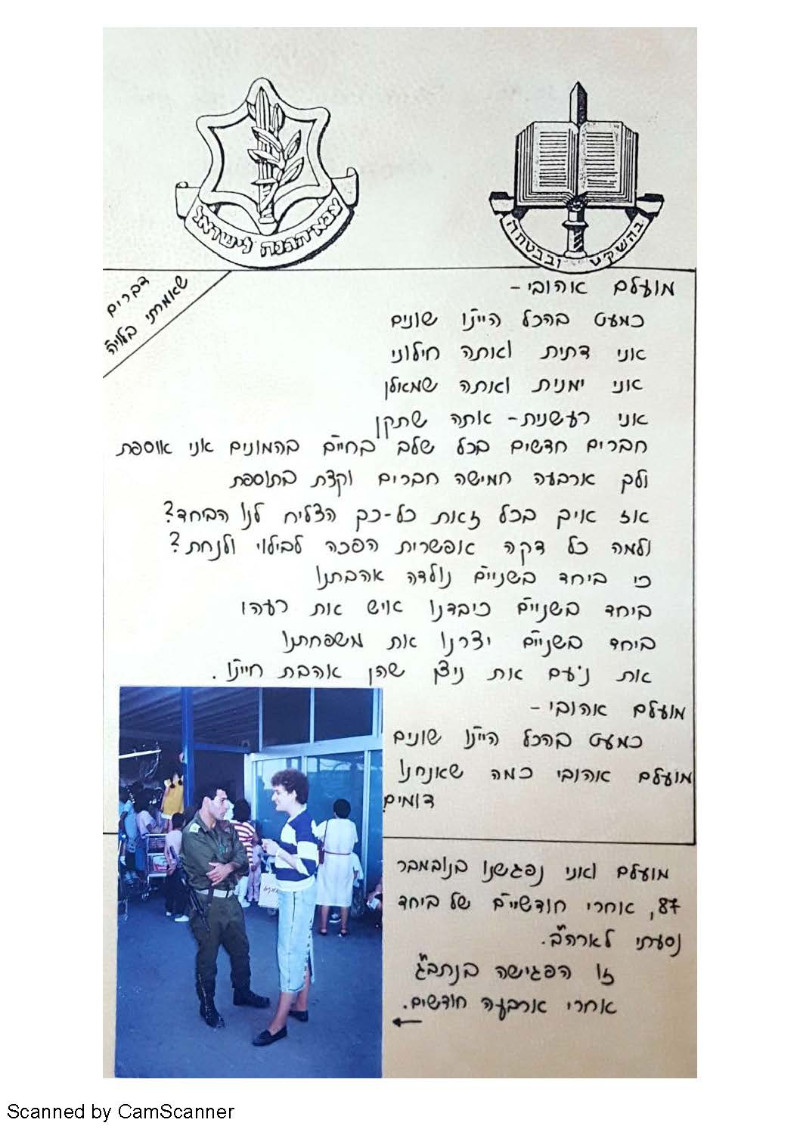 צבא הגנה לישראל
בהשקט ובבטחה
דברים
שאמרתי בלויה
מועלם אהובי -
כמעט בהכל היינו שונים
אני דתית ואתה חילוני
אני ימנית ואתה שמאלן
אני רעשנית - אתה שתקן
חברים חדשים בכל שלב בחיים בהמונים אני אוספת
ולך ארבעה חמישה חברים וקצת בתוספת
אז איך בכל זאת כל-כך הצליח לנו הביחד?
ולמה כל דקה אפשרית הפכה לבילוי ולנחת?
כי ביחד בשניים נולדה אהבתנו
ביחד בשניים כיבדנו איש את רעהו
ביחד בשניים יצרנו את משפחתנו
את נעם את ניצן שהן אהבת חיינו.
מועלם אהובי -
כמעט בהכל היינו שונים
מועלם אהובי כמה שאנחנו
דומים
מועלם ואני נפגשנו בנובמבר
87, אחרי חודשיים של ביחד
נסעתי לארה"ב.
זו הפגישה בנתב"ג
אחרי ארבעה חודשים.
Scanned by CamScanner